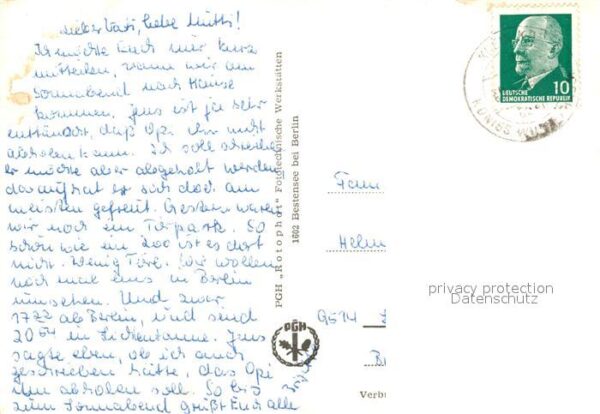 Lieber Vati, liebe Mutti!
Ich möchte Euch nur kurz
mitteilen, wann wir am
Sonnabend nach Hause
kommen. Jens ist ja sehr
enttäuscht, daß Opi ihn nicht
abholen kann. Ich soll schreiben
er möchte aber abgeholt werden
darauf hat er sich doch am
meisten gefreut. Gestern waren
wir noch im Tierpark. So
schön wie im Zoo ist es dort
nicht. Wenig Tiere. Wir wollen
noch mal uns in Berlin
umsehen. Und zwar
17 22 ab Berlin, und sind
20 54 in Lichtentanne. Jens
sagte eben, ob ich auch
geschrieben hätte, das Opi
ihn abholen soll. So bis
zum Sonnabend grüßt Euch alle
PGH „Rotophot" Fototechnische Werkstätten
1602 Bestensee bei Berlin
PGH
DEUTSCHE
DEMOKRATISCHE REPUBLIK
10
Fam
Helm
9514
Verb
privacy protection
Datenschutz